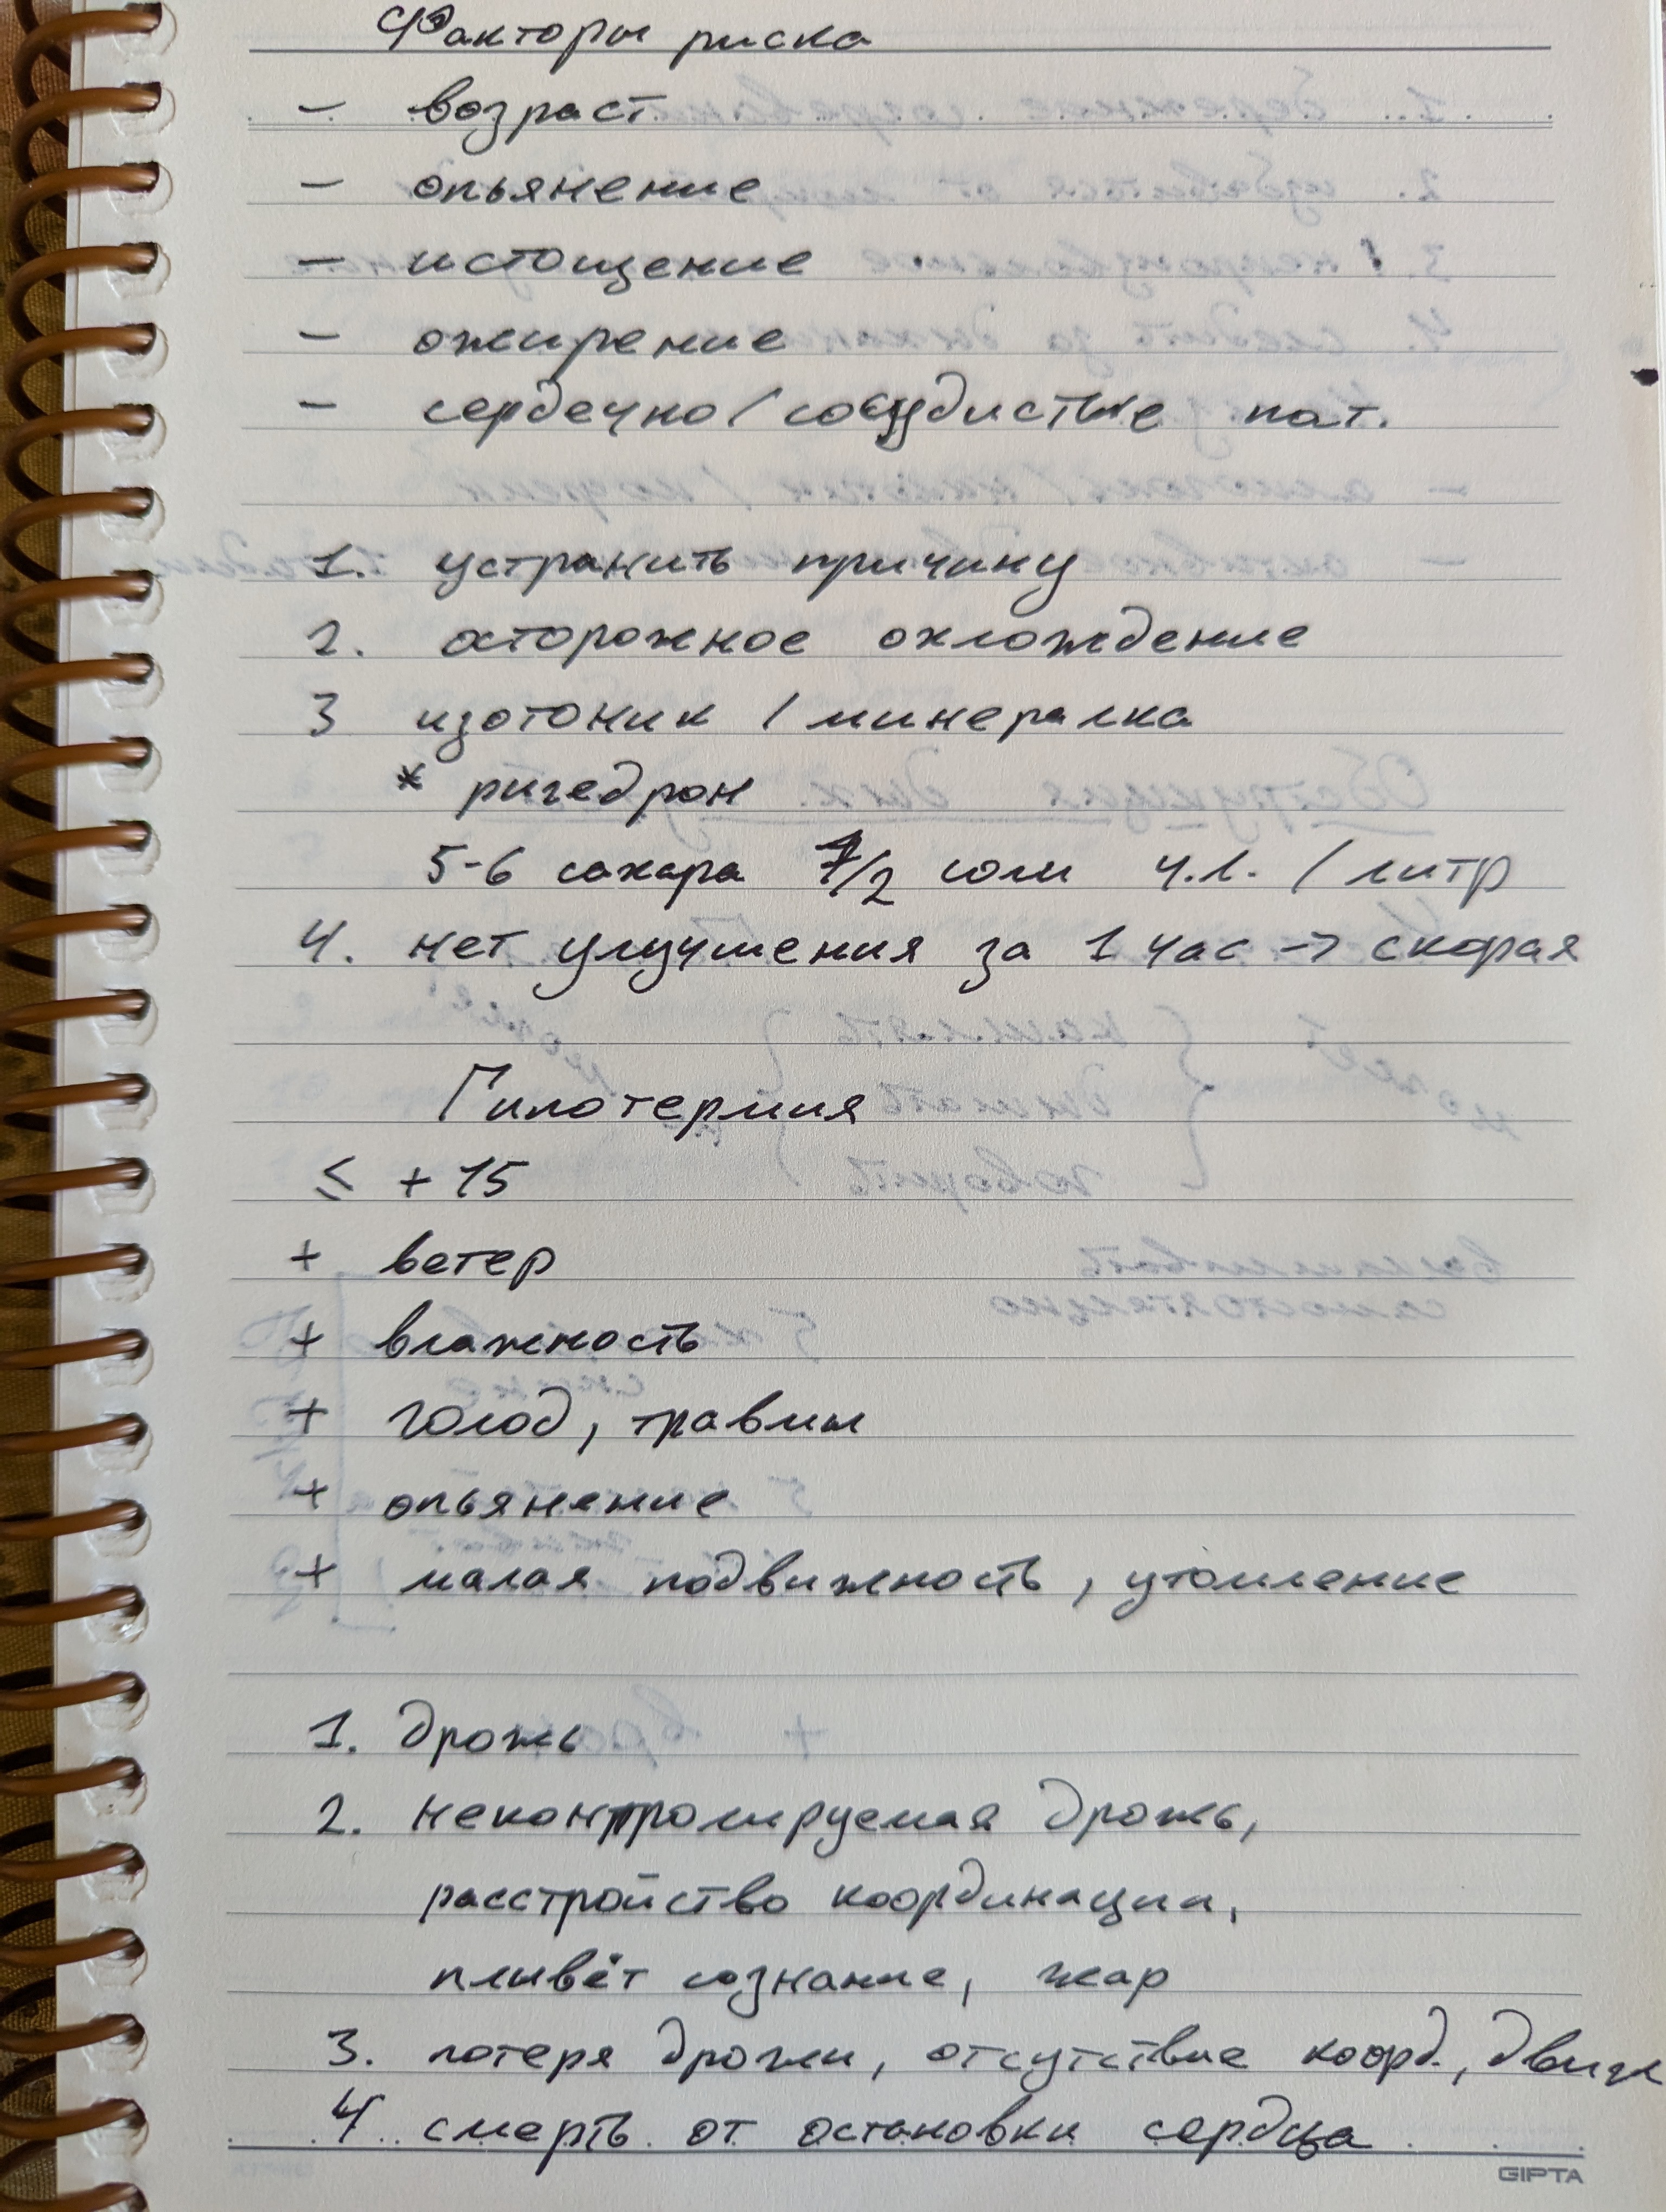 Факторы риска
- возраст
- опьянение
- истощение
- ожирение
- сердечно/сосудистые пат.
1. устранить причину
2. осторожное охлаждение
3 изотоник / минералка
* ригедрон
5-6 сахара 1/2 соли ч.л. / литр
4. нет улучшения за 1 час → скорая
Гипотермия
≤ +15
+ ветер
+ влажность
+ голод, травмы
+ опьянение
+ малая подвижность, утомление
1. Дрожь
2. неконтролируемая дрожь,
расстройство координации,
плывёт сознание, жар
3. потеря дрожи, отсутствие коорд., движ
4. смерть от остановки сердца
GIPTA